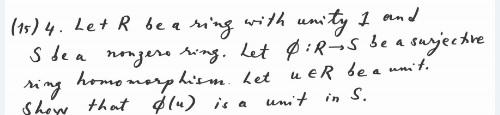 (15) 4. Let R be a ring with unity 1 and
S be a nonzero ring. Let ϕ: R→S be a surjective
ring homomorphism. Let u∈R be a unit.
Show that ϕ(u) is a unit in S.